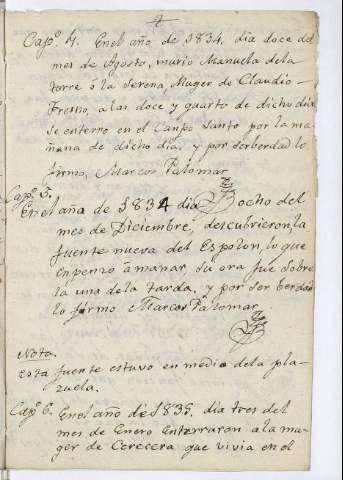 4
Capº 4. En el año de 1834. dia doce del
mes de Agosto, murio Manuela dela
torce ò la Serena, Muger de Claudio
a las doce y quarto de dicho dia
se enterro en el Canpo Santo por la ma-
ñana de dicho dia, y por ser berdad lo
firmo, Marcos Palomar
Capº 5.
En el aña de 1834 dia ocho del
mes de Diciembre, descubrieron, la
fuente nueva del Espolon, lo que
enpenzo à manar, su ora fue sobre
la una de la tarda, y por ser berdad
lo firmo Marcos Palomar
Nota.
esta fuente estuvo en medio dela pla-
zuela.
Capº 6. En el año de 1835, dia tres del
mes de Enero Enterraron a la mu-
ger de Cerecera que vivia en el